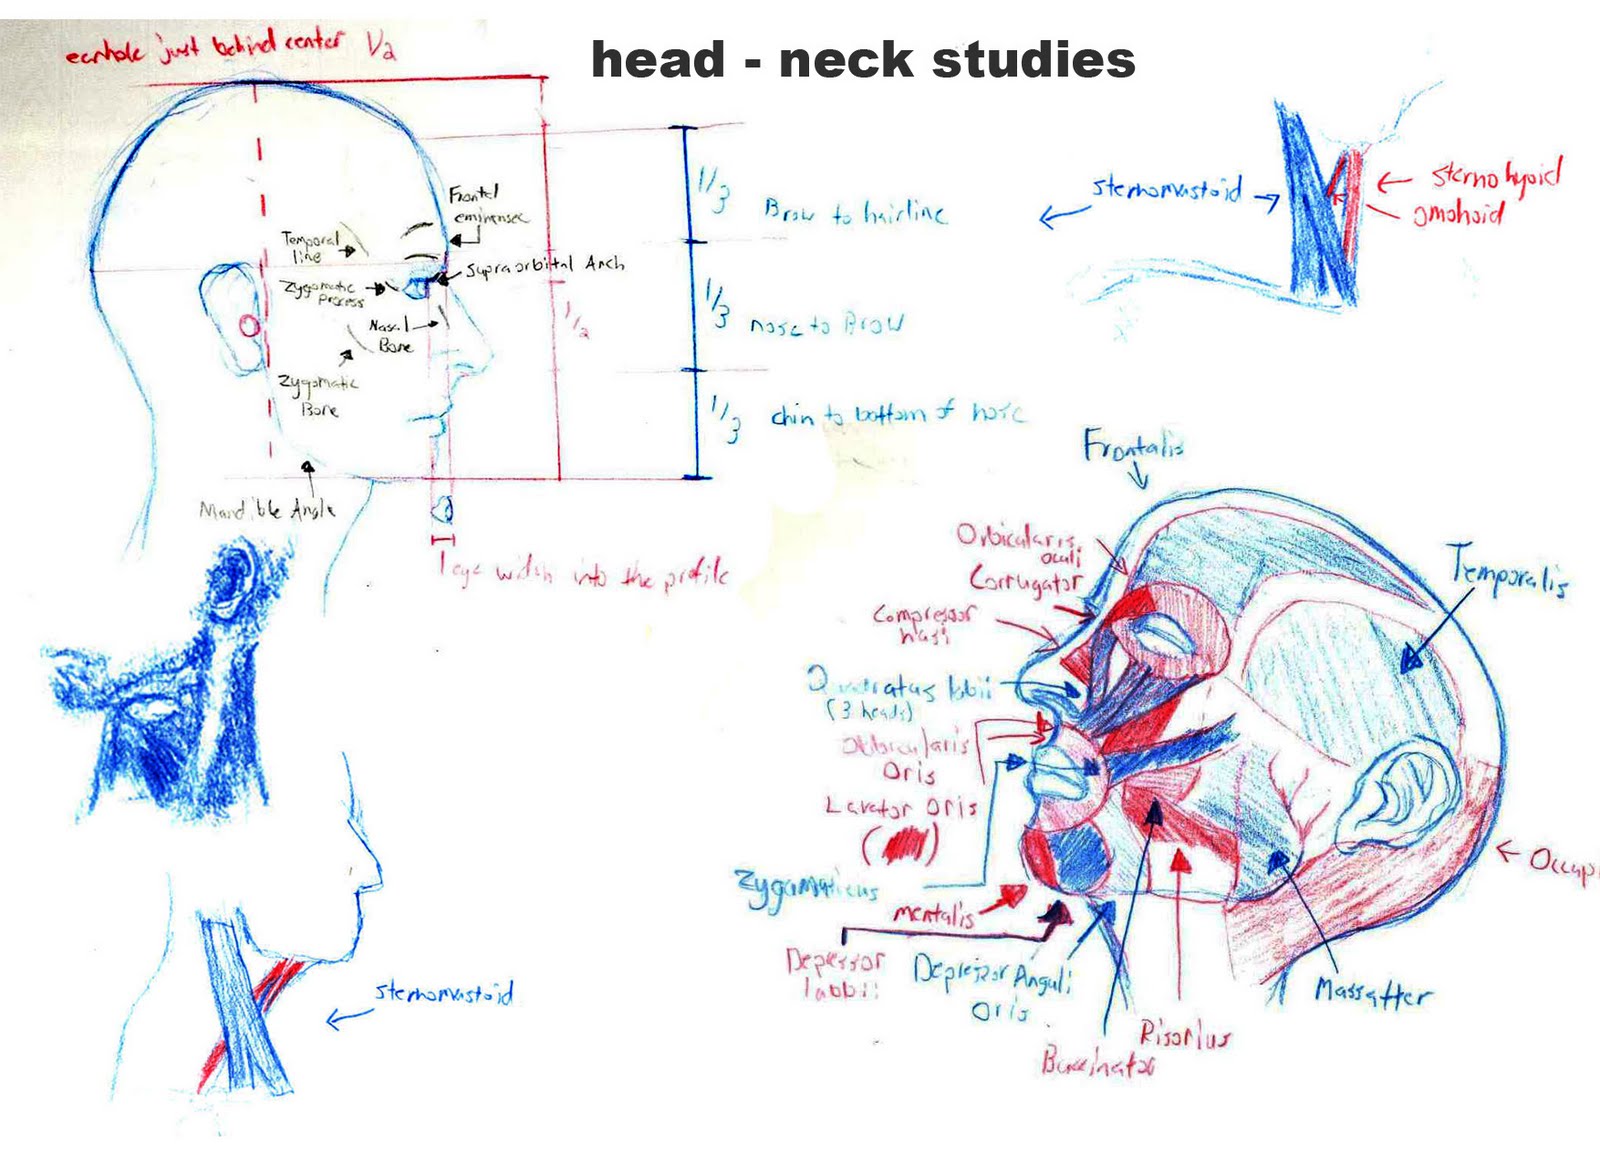 head - neck studies
earhole just behind center 1/2
Frontal
eminensec
Temporal
line
supraorbital Arch
Zygomatic
process
Nasal
Bone
Zygomatic
Bone
Mandible Angle
1/2
1/3 Brow to hairline
1/3 nose to Brow
1/3 chin to bottom of nose
1 eye width into the profile
sternomastoid
sterno hyoid
omohoid
Frontalis
Orbicularis
oculi
Corrugator
Compressor
nasi
Quadratus labii
(3 heads)
Orbicularis
Oris
Levator Oris
Zygomaticus
mentalis
Depressor
labbii
Depressor Anguli
Oris
Buccinator
Risorius
Massatter
Temporalis
Occupi
sternomastoid